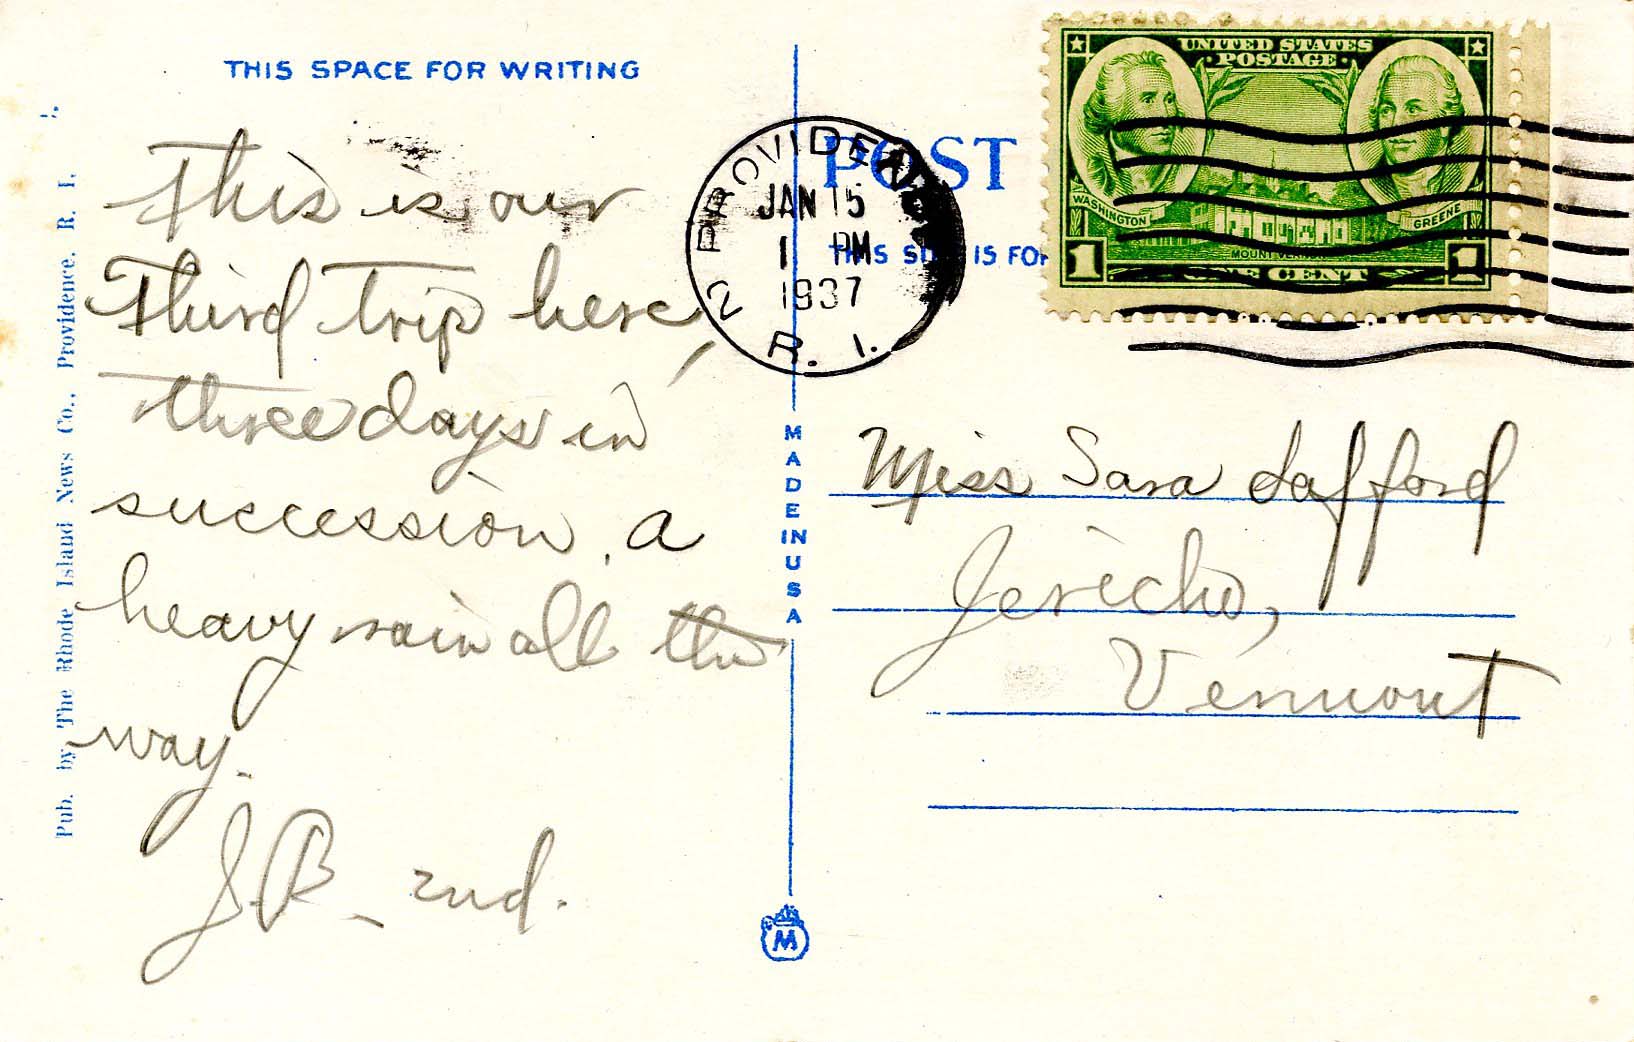 THIS SPACE FOR WRITING
This is our
third trip here,
three days in
succession, a
heavy rain all the
way.
J.B. 2nd.
Pub. by The Rhode Island News Co., Providence, R. I.
MADE IN USA
M
PROVIDENCE
2
JAN 15
1 PM
1937
R. I.
POST
THIS SIDE IS FOR
UNITED STATES
POSTAGE
WASHINGTON
GREENE
MOUNT VERNON
1 ONE CENT 1
Miss Sara Safford
Jericho,
Vermont